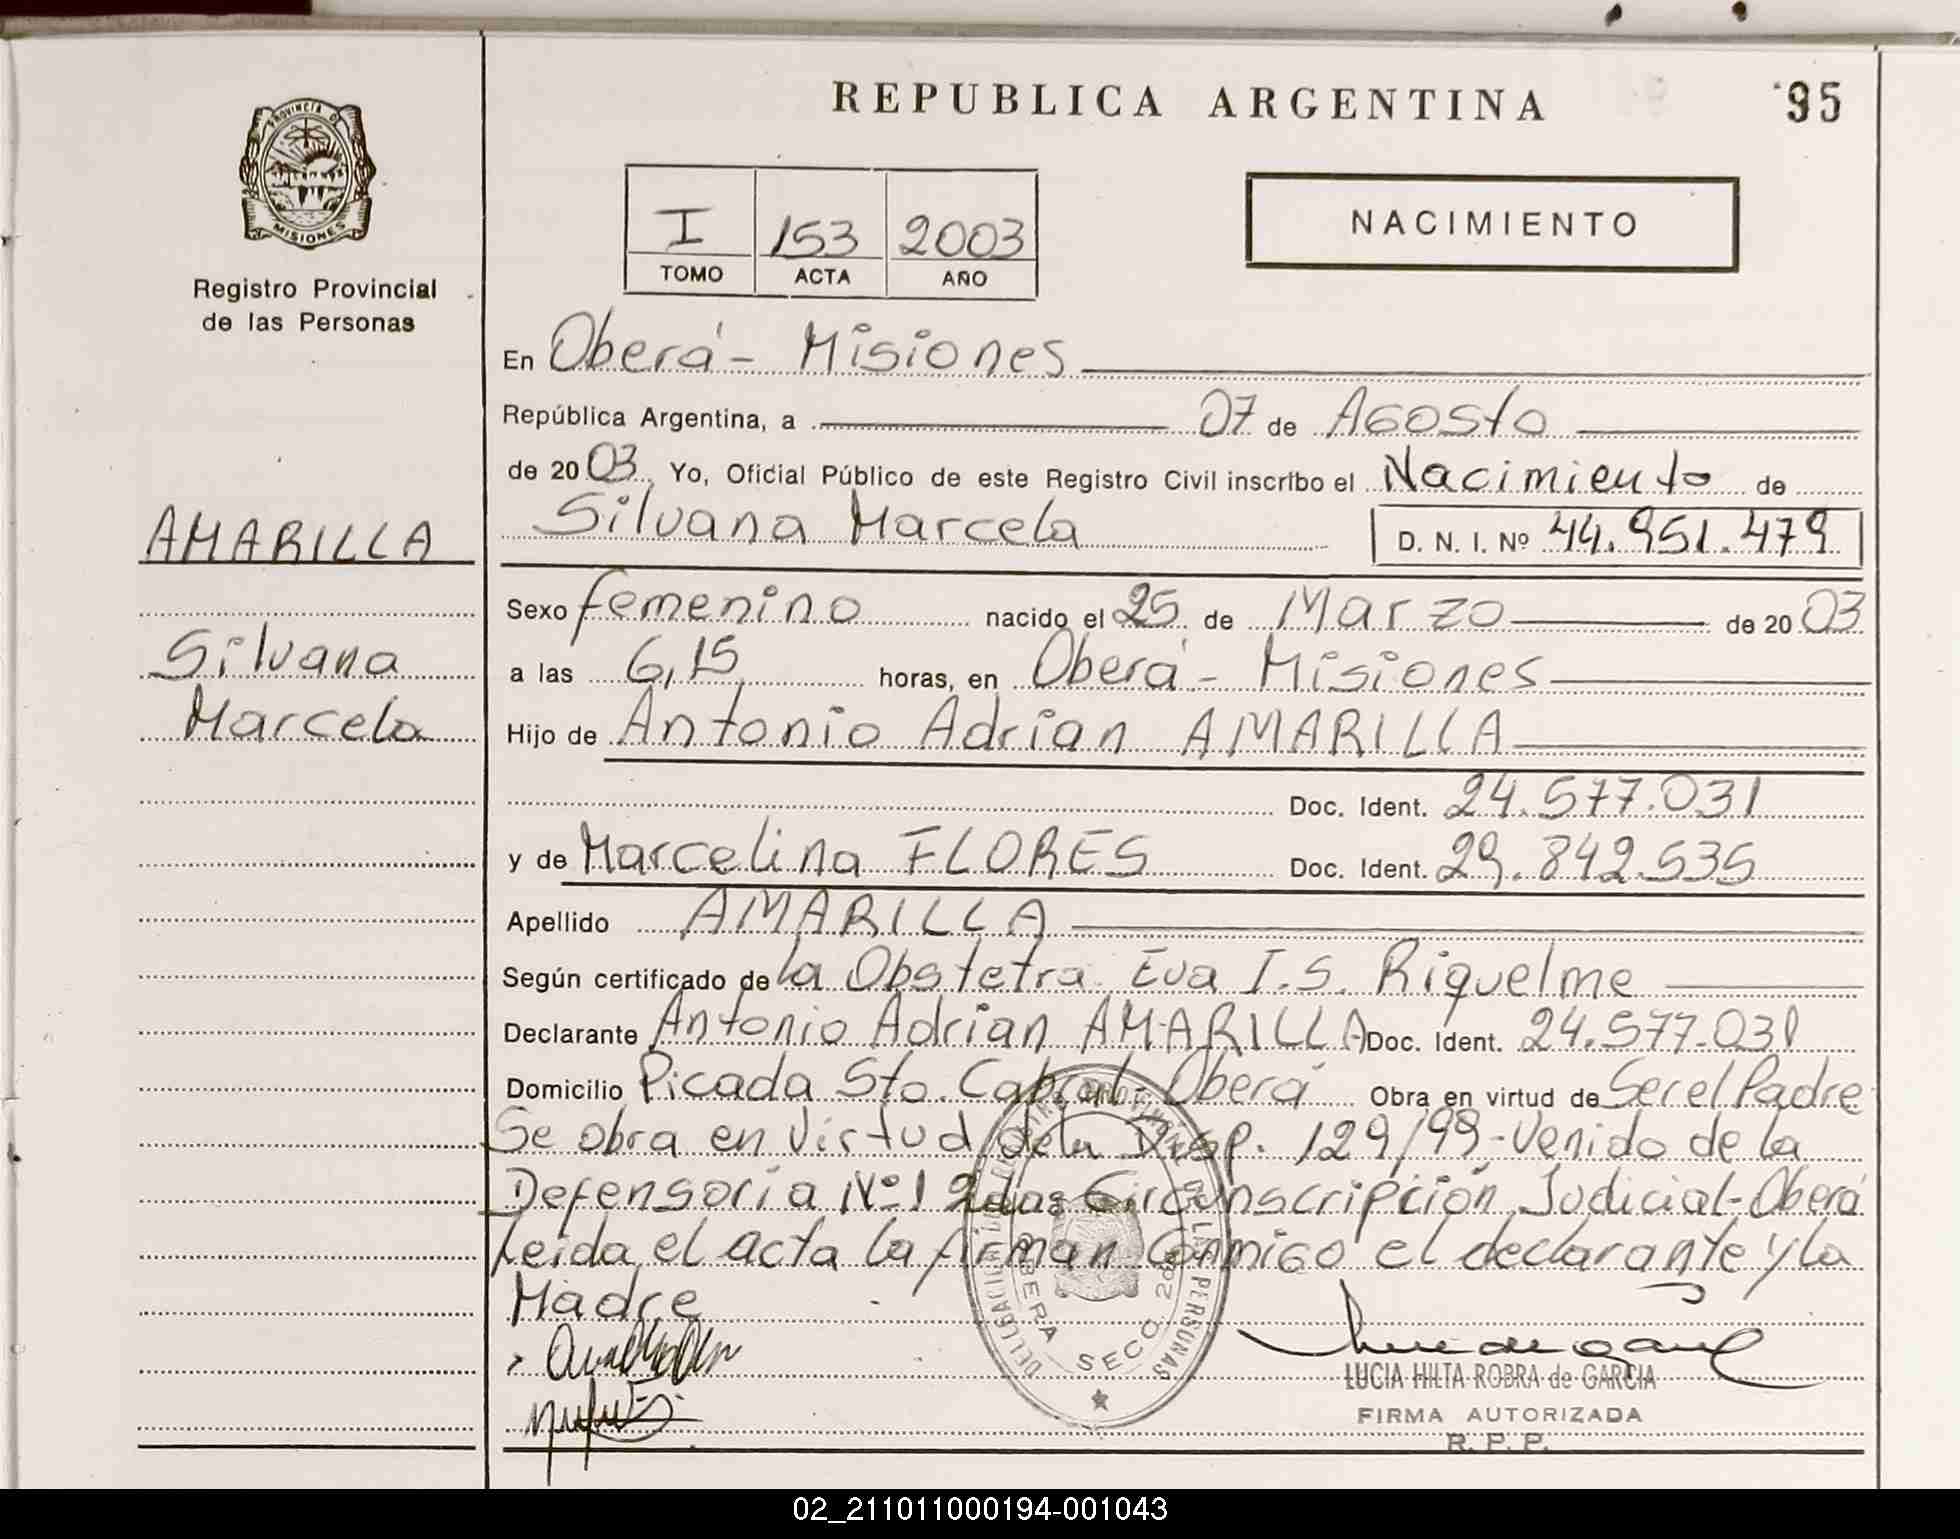 REPUBLICA ARGENTINA
95
PROVINCIA DE
MISIONES
Registro Provincial
de las Personas
I 153 2003
TOMO ACTA AÑO
NACIMIENTO
En Oberá - Misiones
República Argentina, a 07 de Agosto
de 2003 Yo, Oficial Público de este Registro Civil inscribo el Nacimiento de
Silvana Marcela D. N. I. Nº 44.951.479
AMARILLA
Silvana
Marcela
Sexo femenino nacido el 25 de Marzo de 2003
a las 6,15 horas, en Oberá - Misiones
Hijo de Antonio Adrian AMARILLA
Doc. Ident. 24.577.031
y de Marcelina FLORES Doc. Ident. 29.842.535
Apellido AMARILLA
Según certificado de la Obstetra Eva I.S. Riquelme
Declarante Antonio Adrian AMARILLA Doc. Ident. 24.577.031
Domicilio Picada Sto. Cabral - Oberá Obra en virtud de Ser el Padre
Se obra en virtud de la Disp. 129/99 - Venido de la
Defensoría Nº 1 2da Circunscripción Judicial - Oberá
Leída el acta la firman conmigo el declarante y la
Madre
OBERA SECC. 2da
LUCIA HILTA ROBRA de GARCIA
FIRMA AUTORIZADA
R. P. P.
02_211011000194-001043